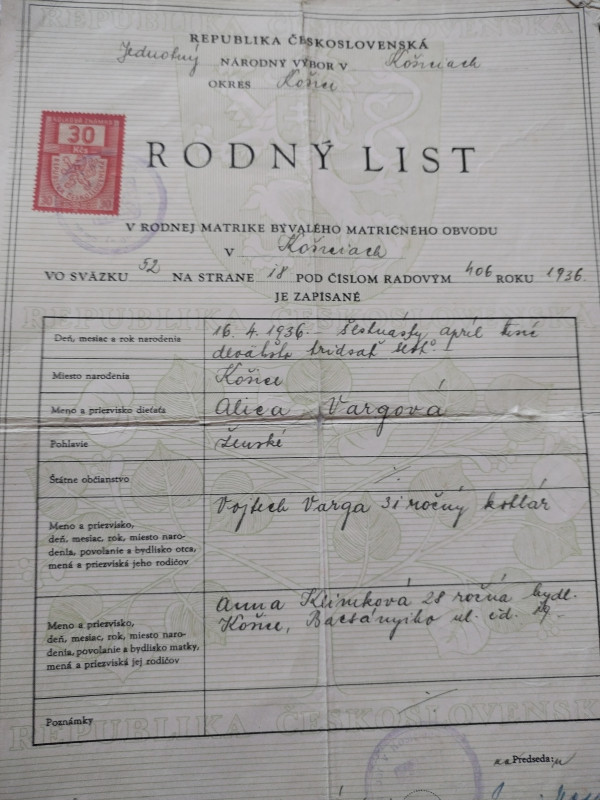 REPUBLIKA ČESKOSLOVENSKÁ
Jednotný NÁRODNÝ VÝBOR V Košiciach
OKRES Košice
KOLKOVÁ ZNÁMKA
30
Kčs
30 30
RODNÝ LIST
V RODNEJ MATRIKE BÝVALÉHO MATRIČNÉHO OBVODU
V Košiciach
VO SVÄZKU 52 NA STRANE 18 POD ČÍSLOM RADOVÝM 406 ROKU 1936.
JE ZAPÍSANÉ
Deň, mesiac a rok narodenia 16. 4. 1936. – šestnásty apríl tisíc
deväťsto tridsať šesť
Miesto narodenia Košice
Meno a priezvisko dieťaťa Alica Vargová
Pohlavie ženské
Štátne občianstvo
Meno a priezvisko, Vojtech Varga 31 ročný kotlár
deň, mesiac, rok, miesto naro-
denia, povolanie a bydlisko otca,
mená a priezviská jeho rodičov
Anna Klimková 28 ročná bydl.
Meno a priezvisko, Košice, Bacsányiho ul. čd. 19.
deň, mesiac, rok, miesto naro-
denia, povolanie a bydlisko matky,
mená a priezviská jej rodičov
Poznámky
REPUBLIKA ČESKOSLOVENSKÁ
Predseda: